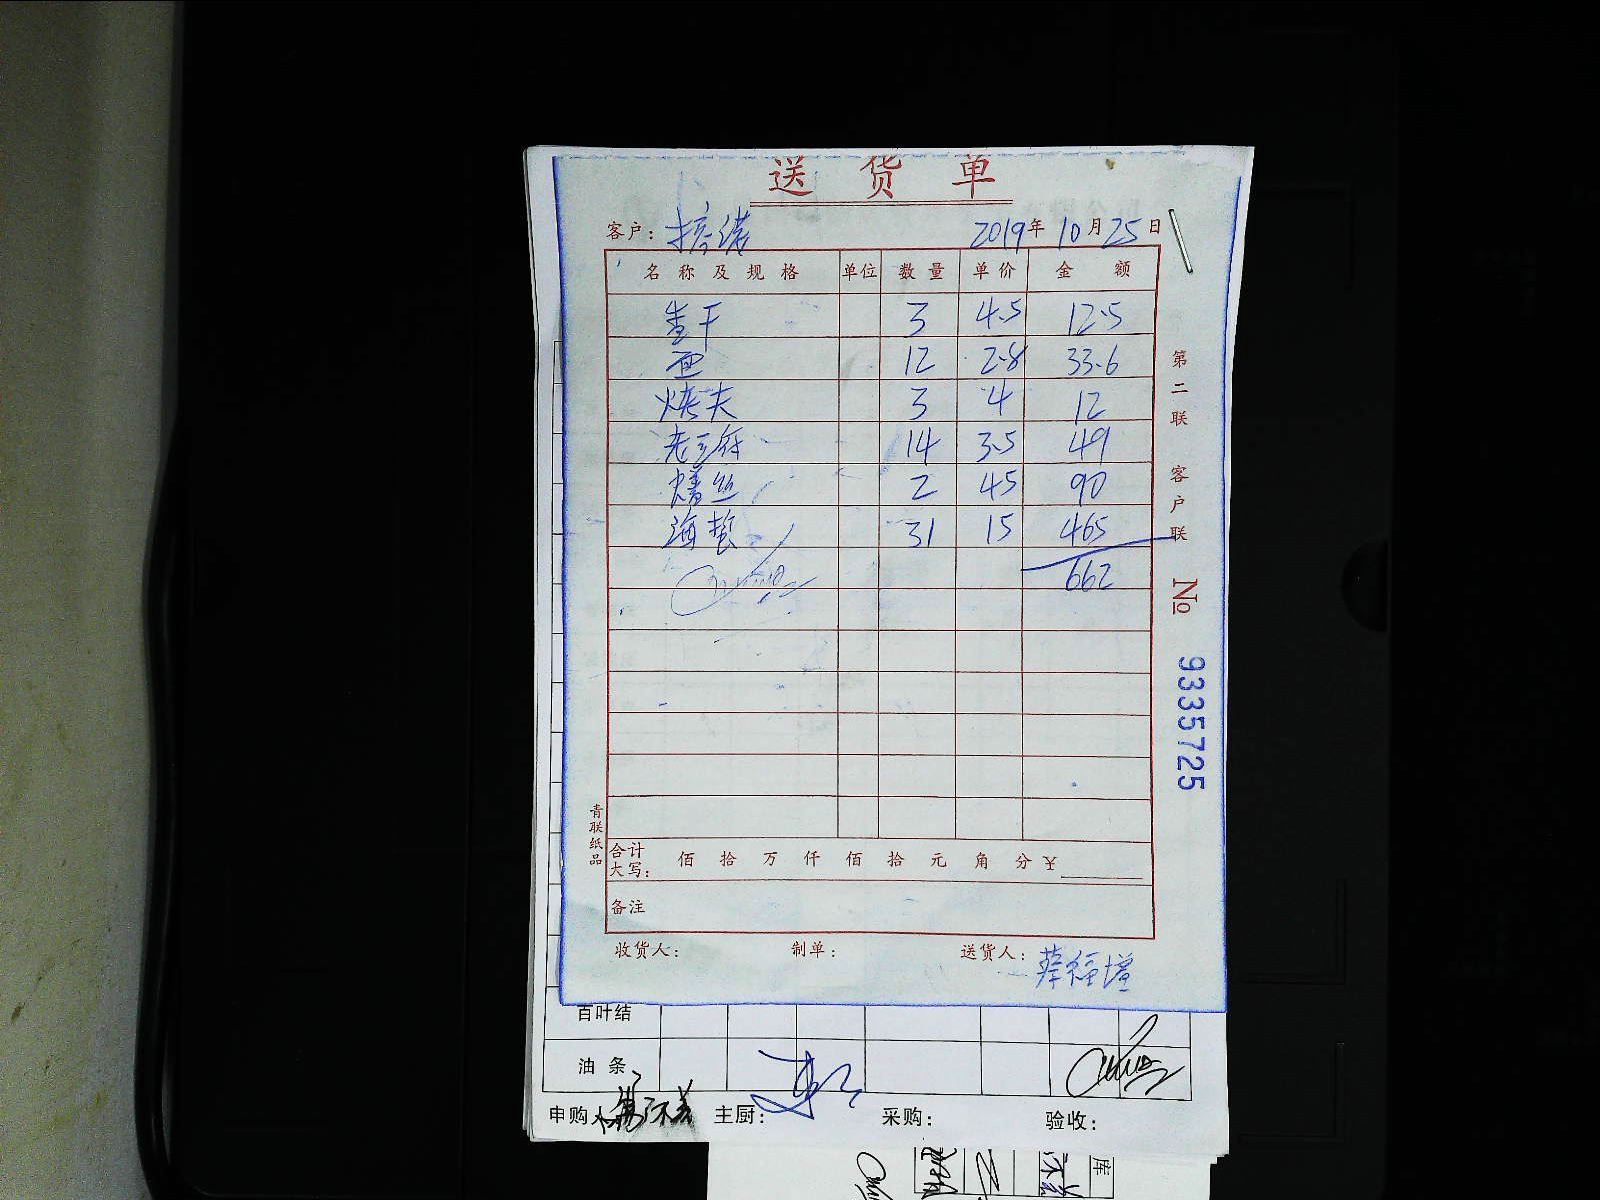 送货单
客户: 2019年10月25日
名称及规格 单位 数量 单价 金额
3 4.5 12.5
12 2.8 33.6
烤夫 3 4 12
老豆付 14 3.5 49
丝 2 45 90
海蜇 31 15 465
662
合计大写: 佰 拾 万 仟 佰 拾 元 角 分 ¥
备注
收货人: 制单: 送货人: 蔡福
第二联 客户联
№ 9335725
青联纸品
百叶结
油条
申购人 主厨: 采购: 验收:
库